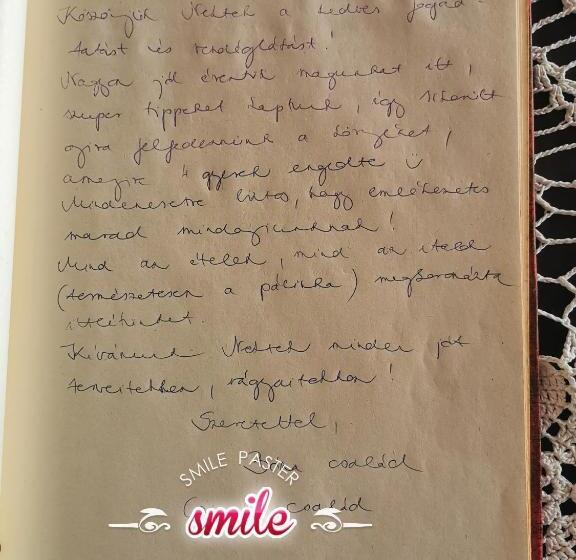 Köszönjük Nektek a kedves fogad-
tatást és vendéglátást!
Nagyon jól éreztük magunkat itt,
szuper tippeket kaptunk, így sikerült
újra felfedeznünk a környéket,
amennyire 4 gyerek engedte Ü
Mindenesetre biztos, hogy emlékezetes
marad mindagyiunknak!
Mind az ételek, mind az italok
(természetesen a pálinka) megkoronázta
ittlétünket.
Kívánunk Nektek minden jót
terveitekhez, vágyaitokhoz!
Szeretettel,
család
család
SMILE PASTER
smile